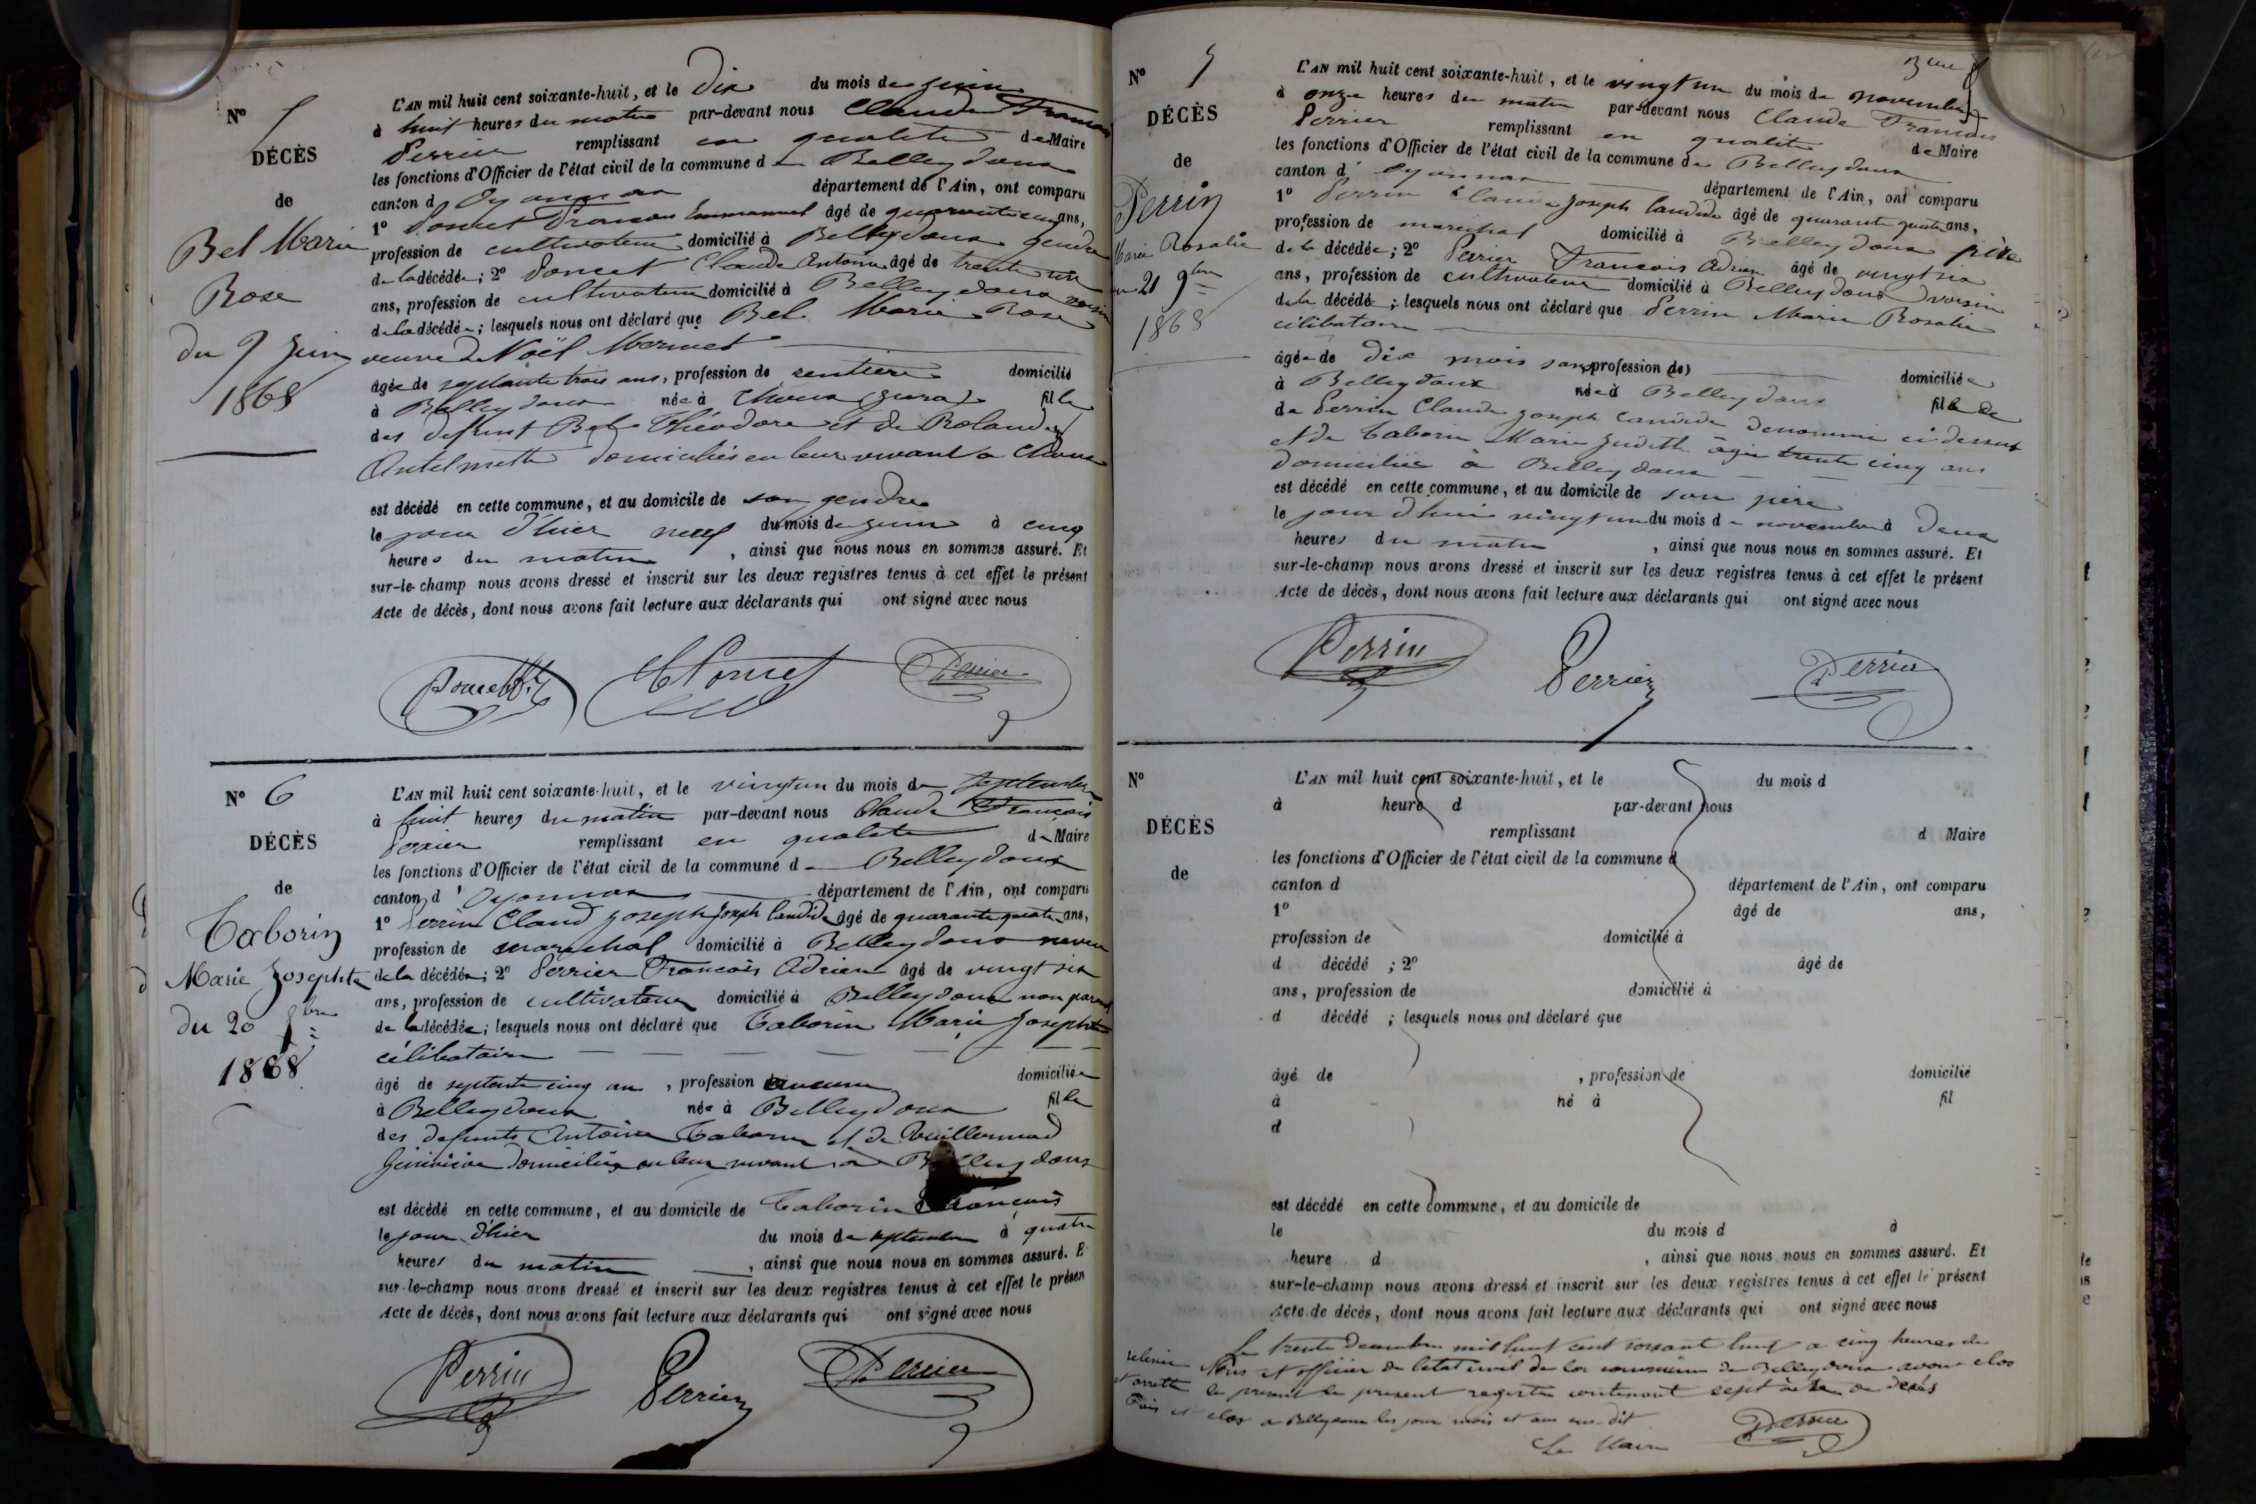 N° 5
DÉCÈS
de
Bel Marie
Rose
du 9 Juin
1868
L'AN mil huit cent soixante-huit, et le Dix du mois de juin
à huit heures du matin par-devant nous Claude François
Perrier remplissant en qualité de Maire
les fonctions d'Officier de l'état civil de la commune de Belleydoux
canton d'Oyonnax département de l'Ain, ont comparu
1° Poncet François Emmanuel âgé de quarante cinq ans,
profession de cultivateur domicilié à Belleydoux gendre
de la décédée; 2° Poncet Claude Antoine âgé de trente un
ans, profession de cultivateur domicilié à Belleydoux voisin
de la décédée; lesquels nous ont déclaré que Bel Marie Rose
veuve de Noël Mermet
âgée de septante trois ans, profession de rentière domicilié
à Belleydoux née à Choux (Jura) fille
des defunt Bel Théodore et de Rolandez
Antelmette domiciliés en leur vivant à Choux
est décédé en cette commune, et au domicile de son gendre
le jour d'hier neuf du mois de juin à cinq
heures du matin, ainsi que nous nous en sommes assuré. Et
sur-le-champ nous avons dressé et inscrit sur les deux registres tenus à cet effet le présent
Acte de décès, dont nous avons fait lecture aux déclarants qui ont signé avec nous
Poncet Poncet Perrier
N° 6
DÉCÈS
de
Taborin
Marie Josephte
du 20 7bre
1868
L'AN mil huit cent soixante-huit, et le vingt un du mois de septembre
à huit heures du matin par-devant nous Claude François
Perrier remplissant en qualité de Maire
les fonctions d'Officier de l'état civil de la commune de Belleydoux
canton d'Oyonnax département de l'Ain, ont comparu
1° Perrin Claud Joseph Joseph Candide âgé de quarante quatre ans,
profession de marechal domicilié à Belleydoux neveu
de la décédée; 2° Perrier François Adrien âgé de vingt six
ans, profession de cultivateur domicilié à Belleydoux non parent
de la décédée; lesquels nous ont déclaré que Taborin Marie Josephte
célibataire
âgé de septante cinq ans, profession aucune domiciliée
à Belleydoux née à Belleydoux fille
des defunts Antoine Taborin et de Vuillermod
Geneviève domiciliés en leur vivant à Belleydoux
est décédé en cette commune, et au domicile de Taborin François
le jour d'hier du mois de septembre à quatre
heures du matin, ainsi que nous nous en sommes assuré. E
sur-le-champ nous avons dressé et inscrit sur les deux registres tenus à cet effet le présen
Acte de décès, dont nous avons fait lecture aux déclarants qui ont signé avec nous
Perrin Perrier Perrier
N° 7
DÉCÈS
de
Perrin
Marie Rosalie
du 21 9bre
1868
L'AN mil huit cent soixante-huit, et le vingt un du mois de novembre
à onze heures du matin par-devant nous Claude François
Perrier remplissant en qualité de Maire
les fonctions d'Officier de l'état civil de la commune de Belleydoux
canton d'Oyonnax département de l'Ain, ont comparu
1° Perrin Claude Joseph Candide âgé de quarante quatre ans,
profession de marechal domicilié à Belleydoux père
de la décédée; 2° Perrier François Adrien âgé de vingt six
ans, profession de cultivateur domicilié à Belleydoux voisin
de la décédé; lesquels nous ont déclaré que Perrin Marie Rosalie
célibataire
âgée de dix mois sans profession (de) domiciliée
à Belleydoux née à Belleydoux fille de
de Perrin Claude Joseph Candide denommé ci dessus
et de Taborin Marie Judith âgée trente cinq ans
domiciliée à Belleydoux
est décédé en cette commune, et au domicile de son père
le jour d'hui vingt un du mois de novembre à deux
heures du matin, ainsi que nous nous en sommes assuré. Et
sur-le-champ nous avons dressé et inscrit sur les deux registres tenus à cet effet le présent
Acte de décès, dont nous avons fait lecture aux déclarants qui ont signé avec nous
Perrin Perrier Perrier
N°
DÉCÈS
de
L'AN mil huit cent soixante-huit, et le du mois d
à heure d par-devant nous
remplissant d Maire
les fonctions d'Officier de l'état civil de la commune d
canton d département de l'Ain, ont comparu
1° âgé de ans,
profession de domicilié à
d décédé ; 2° âgé de
ans, profession de domicilié à
d décédé ; lesquels nous ont déclaré que
âgé de , profession de domicilié
à né à fil
d
est décédé en cette commune, et au domicile de
le du mois d à
heure d , ainsi que nous nous en sommes assuré. Et
sur-le-champ nous avons dressé et inscrit sur les deux registres tenus à cet effet le présent
Acte de décès, dont nous avons fait lecture aux déclarants qui ont signé avec nous
Le trente Decembre mil huit cent soixant huit a cinq heures du
Nous et officier de l'etat civil de la commune de Belleydoux avons clos
et arretté le present le present registre contenant sept actes de decès
Fais et clos a Belleydoux les jour mois et an sus dit
Le Maire Perrier